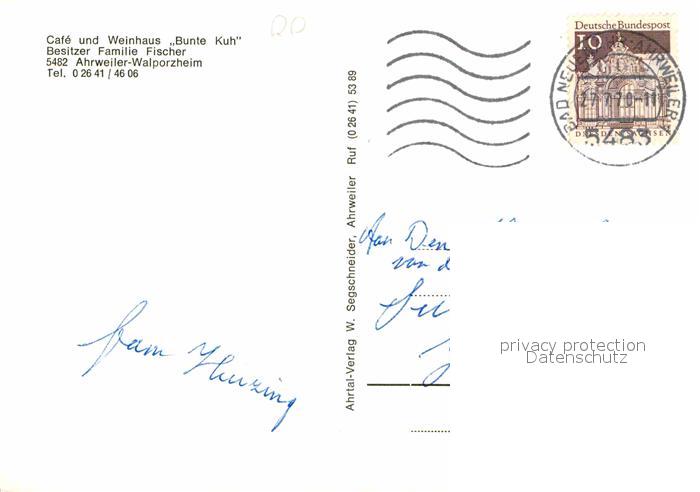 Café und Weinhaus „Bunte Kuh"
Besitzer Familie Fischer
5482 Ahrweiler-Walporzheim
Tel. 0 26 41 / 46 06
Ahrtal-Verlag W. Segschneider, Ahrweiler Ruf (0 26 41) 53 89
Deutsche Bundespost
10
DRESDEN/SACHSEN
BAD NEUENAHR-AHRWEILER
27.7.70-11
5483
Aan Den
van d
privacy protection
Datenschutz